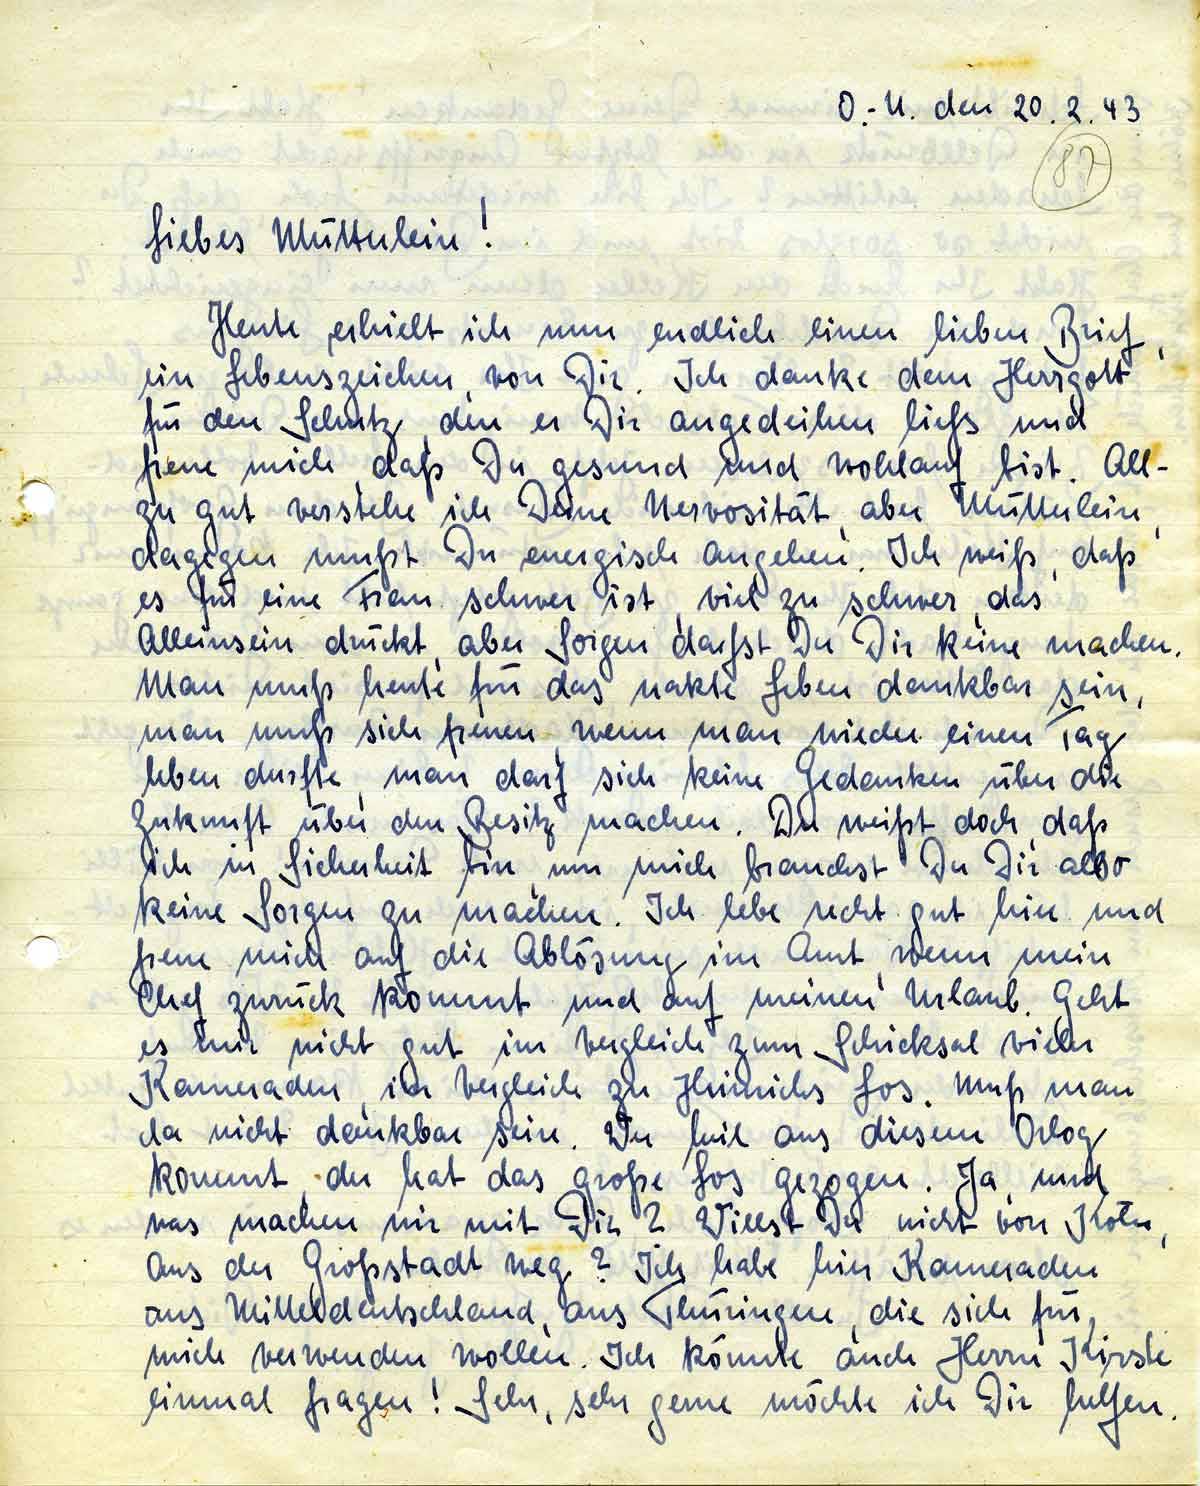 O.-U. den 20.2.43
87
Liebes Mütterlein!
Heute erhielt ich nun endlich einen lieben Brief,
ein Lebenszeichen, von Dir. Ich danke dem Herrgott
für den Schutz, den er Dir angedeihen ließ und
freue mich, daß Du gesund und wohlauf bist. All-
zu gut verstehe ich Deine Nervosität, aber Mütterlein,
dagegen mußt Du energisch angehen. Ich weiß, daß
es für eine Frau schwer ist, viel zu schwer, das
Alleinsein drückt, aber Sorgen darfst Du Dir keine machen.
Man muß heute für das nakte Leben dankbar sein,
man muß sich freuen, wenn man wieder einen Tag
leben durfte, man darf sich keine Gedanken über die
Zukunft über den Besitz machen. Du weißt doch, daß
ich in Sicherheit bin, um mich brauchst Du Dir also
keine Sorgen zu machen. Ich lebe recht gut hier und
freue mich auf die Ablösung im Amt, wenn mein
Chef zurück kommt und auf meinen Urlaub. Geht
es mir nicht gut im Vergleich zum Schicksal vieler
Kameraden, im Vergleich zu Heinrichs Los. Muß man
da nicht dankbar sein. Wer heil aus diesem Orlog
kommt, der hat das große Los gezogen. Ja, und
was machen wir mit Dir? Willst Du nicht von Köln,
aus der Großstadt weg? Ich habe hier Kameraden
aus Mitteldeutschland, aus Thüringen, die sich für
mich verwenden wollen. Ich könnte auch Herrn Kirste
einmal fragen! Sehr, sehr gerne möchte ich Dir helfen.